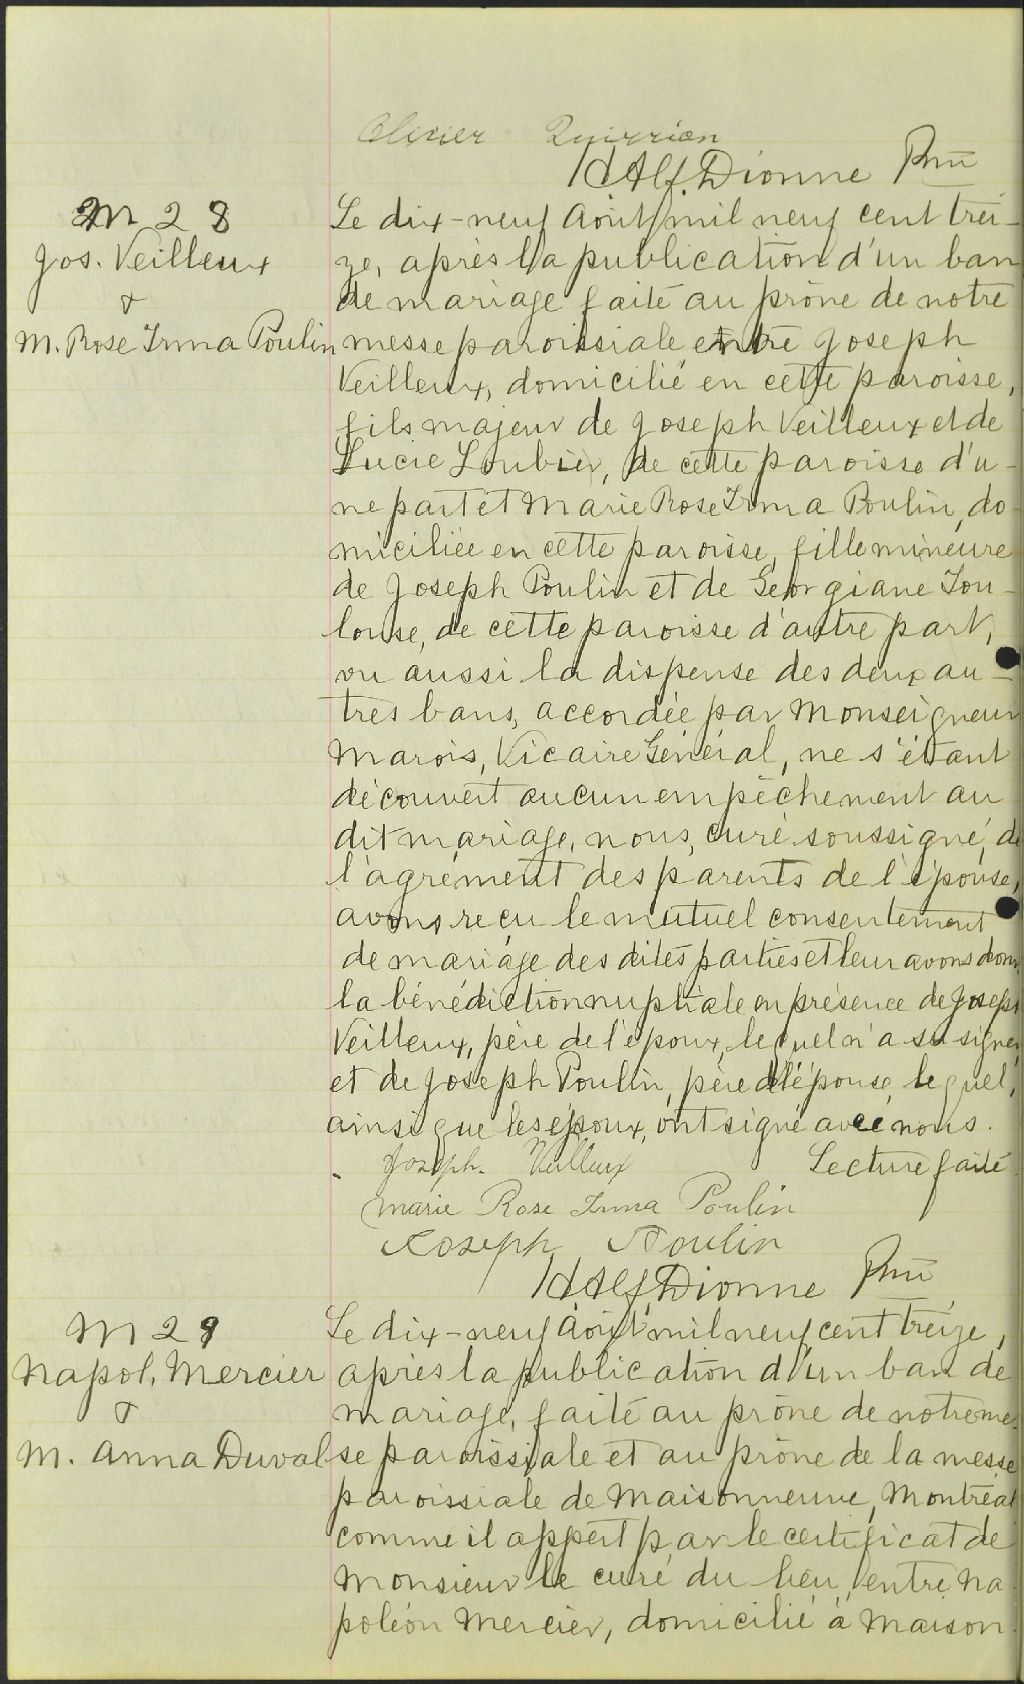 Olivier Quirion
H Alf. Dionne Ptre
M 28
Jos. Veilleux
&
M. Rose Irma Poulin
Le dix-neuf Août mil neuf cent trei-
ze, après la publication d'un ban
de mariage faite au prône de notre
messe paroissiale entre Joseph
Veilleux, domicilié en cette paroisse,
fils majeur de Joseph Veilleux et de
Lucie Loubier, de cette paroisse d'u-
ne part et Marie Rose Irma Poulin, do-
miciliée en cette paroisse, fille mineure
de Joseph Poulin et de Georgiane Tou-
louse, de cette paroisse d'autre part,
vu aussi la dispense des deux au-
tres bans, accordée par Monseigneur
Marois, Vicaire Général, ne s'étant
découvert aucun empêchement au
dit mariage, nous, curé soussigné, de
l'agrément des parents de l'épouse,
avons reçu le mutuel consentement
de mariage des dites parties et leur avons donné
la bénédiction nuptiale en présence de Joseph
Veilleux, père de l'époux, lequel n'a su signer
et de Joseph Poulin, père de l'épouse, lequel,
ainsi que les époux, ont signé avec nous.
Lecture faite
Joseph. Veilleux
Marie Rose Irma Poulin
Joseph Poulin
H Alf Dionne Ptre
M 29
Napol. Mercier
&
M. Anna Duval
Le dix-neuf Août mil neuf cent treize,
après la publication d'un ban de
mariage, faite au prône de notre mes
se paroissiale et au prône de la messe
paroissiale de Maisonneuve, Montréal
comme il appert par le certificat de
Monsieur le curé du lieu, entre Na
poléon Mercier, domicilié à Maison